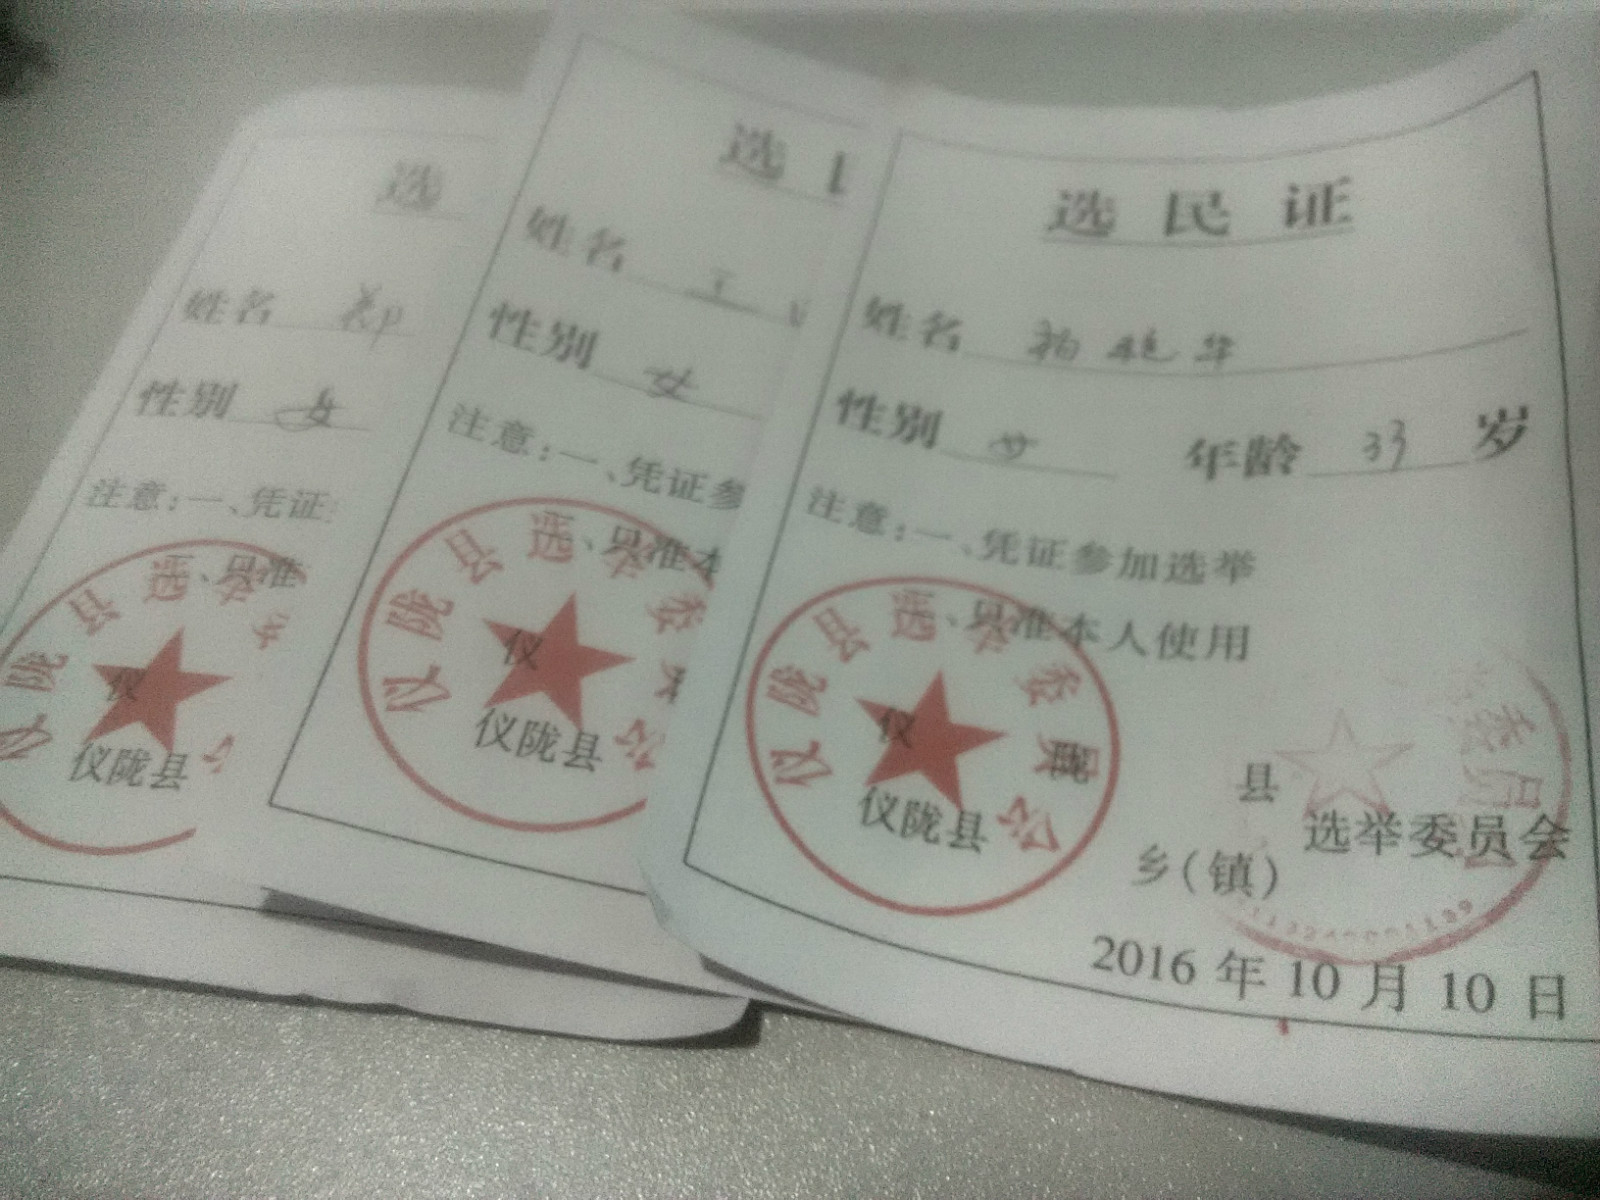 选
姓名 郑
性别 女
注意：一、凭证
、只准
仪陇县选举委
仪
仪陇县
选
姓名 王
性别 女
注意：一、凭证参
、只准本
仪陇县选举委员会
仪
仪陇县
选民证
姓名 艳华
性别 女 年龄 33 岁
注意：一、凭证参加选举
、只准本人使用
仪陇县选举委员会
仪 陇 县
仪陇县 乡（镇） 选举委员会
委员
2016年10月10日